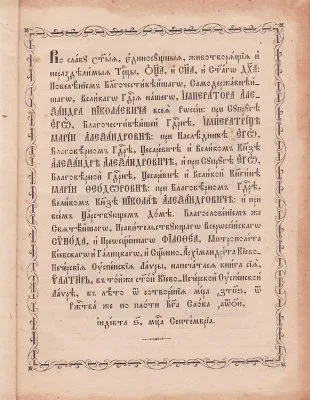 Во славу ст҃ыѧ, єдиносущныѧ, животворѧщїѧ и
нераздѣлимыѧ Трⷪ҇цы, Оц҃а, и Сн҃а, и Ст҃агѡ Дх҃а:
Повелѣнїемъ Благочестивѣйшагѡ, Самодержавнѣй-
шагѡ, Великагѡ Гдⷭ҇рѧ нашегѡ, ИМПЕРАТОРА АЛЕ-
ѮАНДРА НИКОЛАЕВИЧА всеѧ Рѡссїи: при Сꙋпрꙋгѣ
ЕГѠ, Благочестивѣйшей Гдⷭ҇рнѣ, ИМПЕРАТРИЦѢ
МАРІИ АЛЕѮАНДРОВНѢ: при Наслѣдникѣ ЕГѠ,
Благовѣрномъ Гдⷭ҇рѣ, Цесаревичѣ и Великомъ Кнѧзѣ
АЛЕѮАНДРѢ АЛЕѮАНДРОВИЧѢ, и при Сꙋпрꙋгѣ ЕГѠ,
Благовѣрной Гдⷭ҇рнѣ, Цесаревнѣ и Великой Кнѧгинѣ
МАРІИ ѲЕОДѠРОВНѢ: при Благовѣрномъ Гдⷭ҇рѣ,
Великомъ Кнѧзѣ НИКОЛАѢ АЛЕѮАНДРОВИЧѢ: и при
всемъ Царствꙋющемъ Домѣ. Благословенїемъ же
Свѧтѣйшагѡ, Правительствꙋющагѡ Всерѡссїйскагѡ
СѴНОДА, и Преѡсщ҃еннагѡ ФІЛОѲЕА, Митрополїта
Кїевскагѡ и Галицкагѡ, и Сщ҃енно-Архїмандрїта Кїево-
Печерскїѧ Оуспенскїѧ Лаѵры, напечатасѧ книга сїѧ,
ѰАЛТИРЬ, въ тойже ст҃ой Кїево-Печерской Оуспенской
Лаѵрѣ, въ лѣто ѿ сотворенїѧ мїра
Рⷤ҇тва же по плоти Бг҃а Слова
їндїкта мцⷭ҇а Септемврїа.